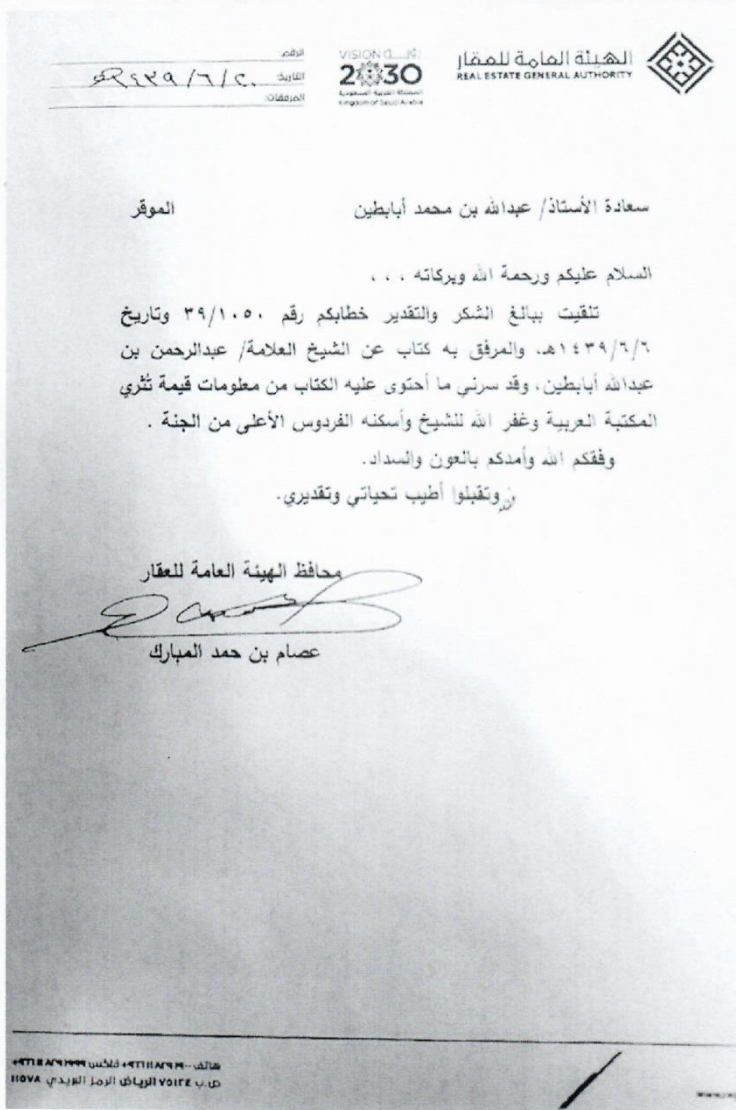 الهيئة العامة للعقار
REAL ESTATE GENERAL AUTHORITY
VISION رؤيــة
2030
المملكة العربية السعودية
Kingdom of Saudi Arabia
الرقم:
التاريخ: ١٤٣٩/٦/٢٠هـ
المرفقات:
سعادة الأستاذ/ عبدالله بن محمد أبابطين الموقر
السلام عليكم ورحمة الله وبركاته ، ، ،
تلقيت ببالغ الشكر والتقدير خطابكم رقم ٣٩/١٠٥٠ وتاريخ
١٤٣٩/٦/٦هـ، والمرفق به كتاب عن الشيخ العلامة/ عبدالرحمن بن
عبدالله أبابطين، وقد سرني ما أحتوى عليه الكتاب من معلومات قيمة تُثري
المكتبة العربية وغفر الله للشيخ وأسكنه الفردوس الأعلى من الجنة .
وفقكم الله وأمدكم بالعون والسداد.
وتقبلوا أطيب تحياتي وتقديري.
محافظ الهيئة العامة للعقار
عصام بن حمد المبارك
هاتف فاكس
ص.ب الرياض الرمز البريدي